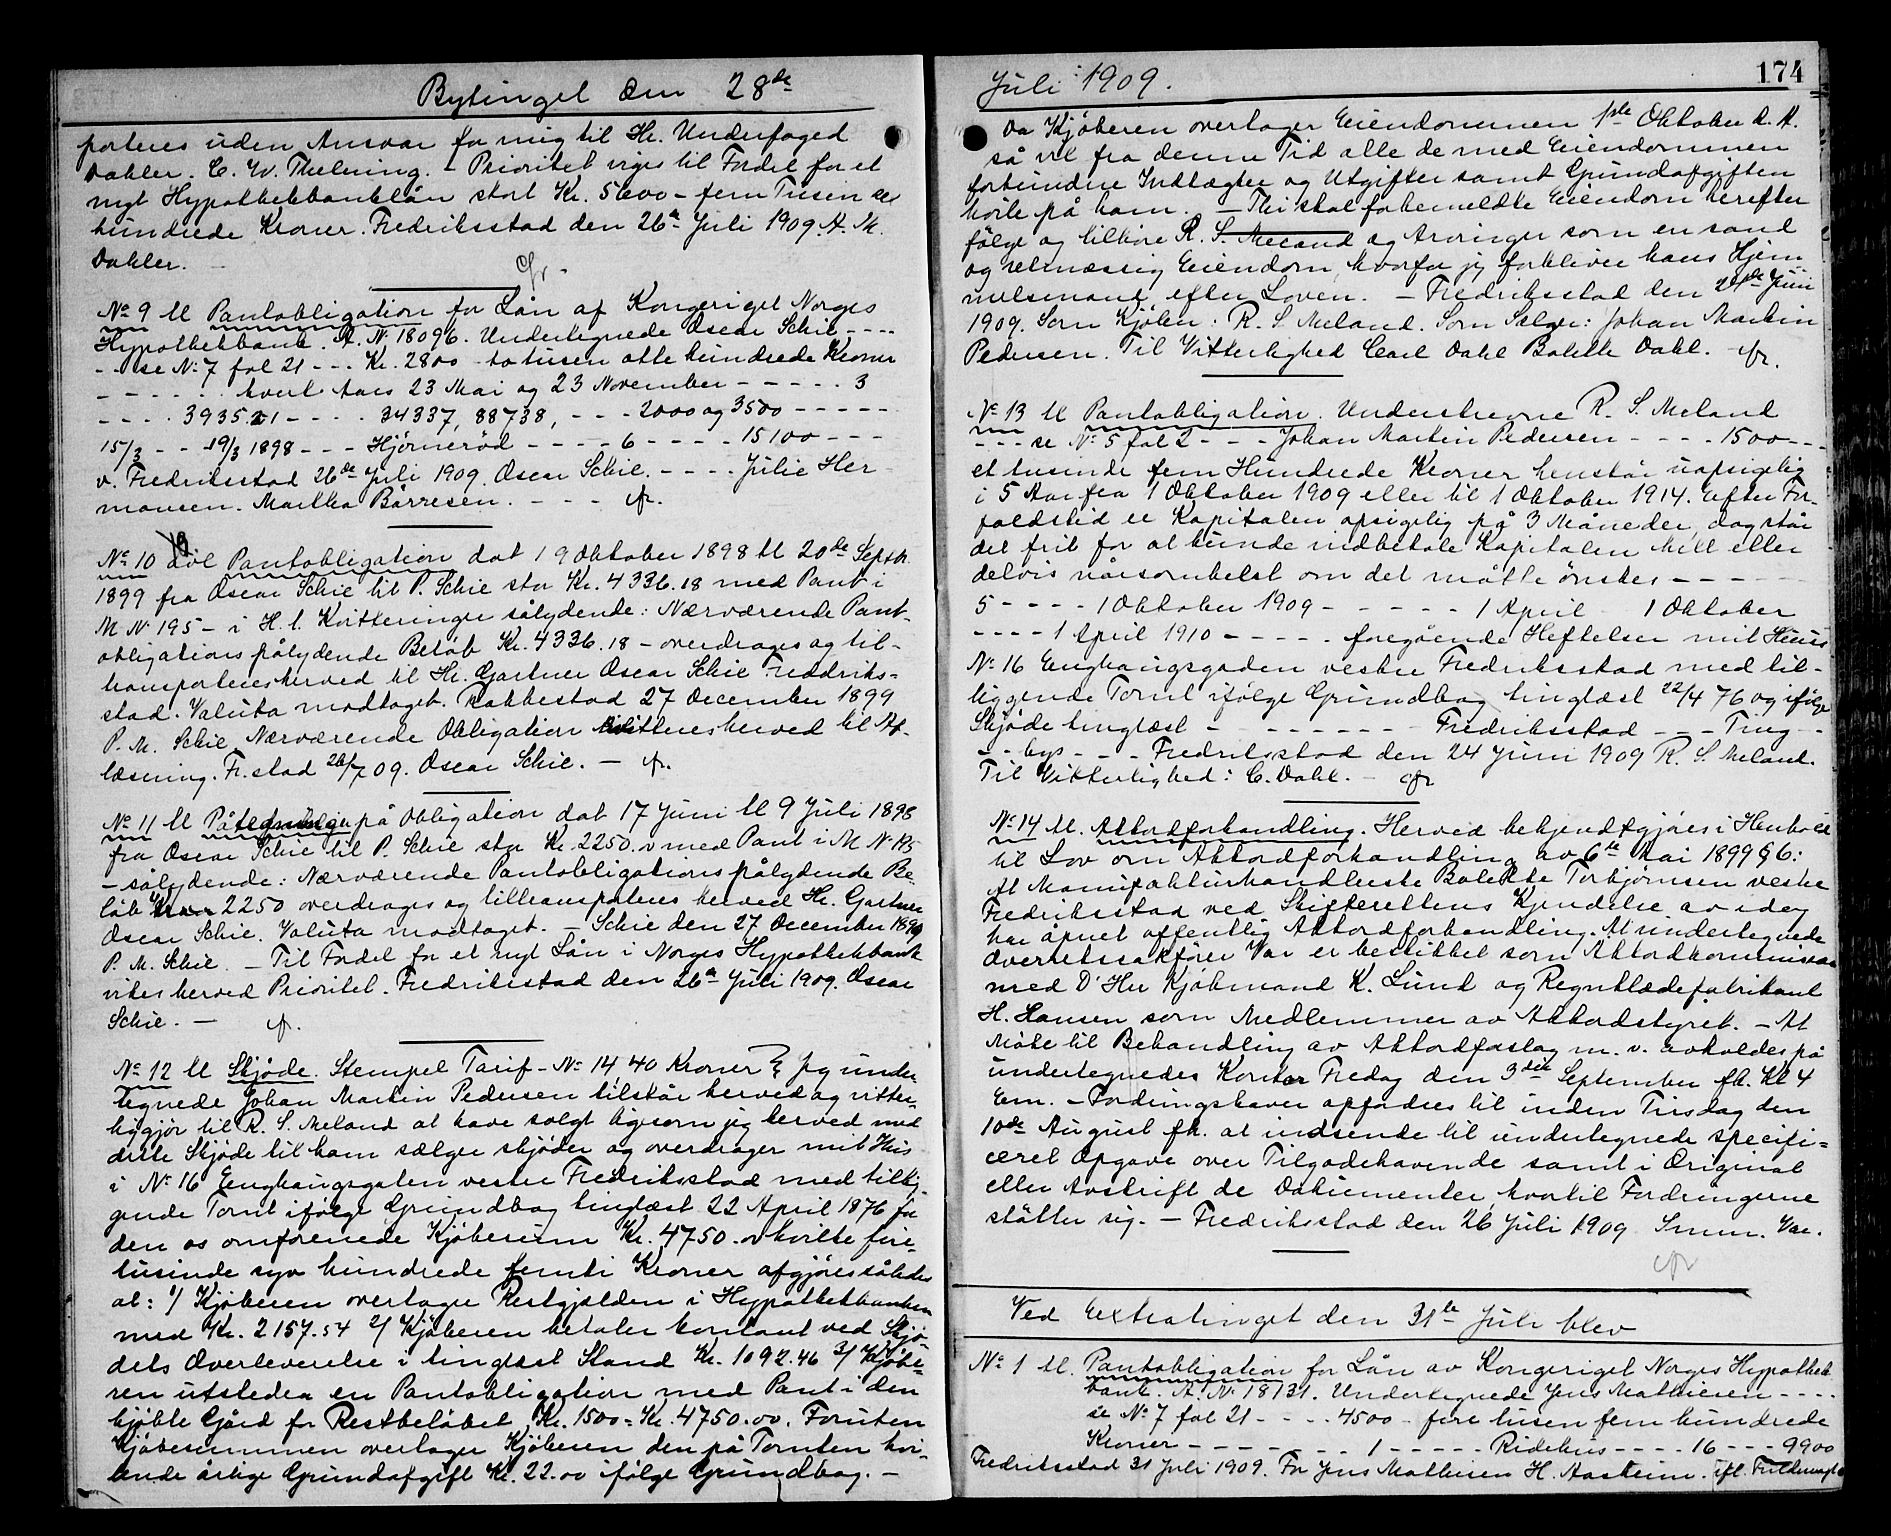 Bytinget den 28de
porteres uden Ansvar for mig til Hr. Underfoged
Dahler. C. W. Thelning. - Prioritet viges til Fordel for et
nyt Hypothekbanklån stort Kr. 5600 - fem Tusen sex
hundrede Kroner. Fredriksstad den 26de Juli 1909. A. M.
Dahler.
cfr.
No 9 tl Pantobligation for Lån af Kongeriget Norges
Hypothekbank. A. No 18096. Undertegnede Oscar Schie - - - -
- - se No 7 fol 21 - - - Kr. 2800 - totusen otte hundrede Kroner
- - - - - - hvert Aars 23 Mai og 23 November - - - - - 3
- - - - 3935.21 - - - - 34337, 88738, - - - 2000 og 3500 - - - - -
15/3 - - 19/3 1898 - - - Hjörneröd - - - - 6 - - - - 15100 - - -
v. Fredriksstad 26de Juli 1909. Oscar Schie. - - - - Julie Her
mansen. Martha Börresen. - - - cfr.
No 10 Pantobligation dat 19 Oktober 1898 tl 20de Septbr.
1899 fra Oscar Schie til P. Schie stor Kr. 4336.18 med Pant i
M No 195 - i H. t. Kvitteringer sålydende: Nærværende Pant-
obligations pålydende Belöb Kr. 4336.18 - overdrages og til-
transporteres herved til Hr. Gartner Oscar Schie Freddriks-
stad. Valuta modtaget. Rakkestad 27 December 1899
P. M. Schie. Nærværende Obligation kvitteres herved til Af-
læsning. Fr.stad 26/7 09. Oscar Schie. - cfr.
No 11 tl Påtegninger på Obligation dat 17 Juni tl 9 Juli 1898
fra Oscar Schie til P. Schie stor Kr. 2250.00 med Pant i M No 195
- sålydende: Nærværende Pantobligations pålydende Be-
löb Kroner 2250 overdrages og tiltransporteres herved Hr. Gartner
Oscar Schie. Valuta modtaget. - Schie den 27 December 1899
P. M. Schie. - Til Fordel for et nyt Lån i Norges Hypothekbank
vikes herved Prioritet. Fredriksstad den 26de Juli 1909. Oscar
Schie. - cfr.
No 12 tl Skjöde. Stempel Tarif - No 14 40 Kroner Jeg under-
tegnede Johan Martin Pedersen tilstår herved og vitter-
liggjör til R. S. Meland at have solgt ligesom jeg herved med
dette Skjöde til ham sælger skjöder og overdrager mit Hus
i No 16 Enghaugsgaten vestre Fredriksstad med tillig-
gende Tomt ifölge Grundbog tinglæst 22 April 1876 for
den os omforenede Kjöbesum Kr. 4750.00 hvilke fire-
tusinde syv hundrede femti Kroner afgjöres således
at: 1/ Kjöberen overtager Restgjælden i Hypothekbanken
med Kr. 2157.54 2/ Kjöberen betaler kontant ved Skjö-
dets Overleverelse i tinglæst Stand Kr. 1092.46 3/ Kjöbe-
ren utsteder en Pantobligation med Pant i den
kjöbte Gård for Restbelöbet Kr. 1500 = Kr. 4750.00. Foruten
Kjöbesummen overtager Kjöberen den på Tomten hvi-
lende årlige Grundafgift Kr. 22.00 ifölge Grundbog. -
Juli 1909.
174
Da Kjöberen overtager Eiendommen 1ste Oktober d. A.
så vil fra denne Tid alle de med Eiendommen
forbundne Indtægter og Utgifter samt Grundafgiften
hvile på ham. - Thi skal forbemeldte Eiendom herefter
fölge og tilhöre R. S. Meland og Arvinger som en sand
og retmæssig Eiendom, hvorfor jeg forbliver hans Hjem-
melsmand efter Loven. - Fredriksstad den 24de Juni
1909. Som Kjöber: R. S. Meland. Som Sælger: Johan Martin
Pedersen. Til Vitterlighed Carl Dahl Bolette Dahl. - cfr.
No 13 tl Pantobligation. Underskrevne R. S. Meland
- - - se No 5 fol 2 - - - Johan Martin Pedersen - - - - 1500 - - -
et tusinde fem Hundrede Kroner henstår uopsigelig
i 5 Aar fra 1 Oktober 1909 eller til 1 Oktober 1914. Efter For-
faldstid er Kapitalen opsigelig på 3 Måneder, dog står
det frit for at kunde indbetale Kapitalen helt eller
delvis nårsomhelst om det måtte önskes - - - - -
5 - - - - 1 Oktober 1909 - - - - - - 1 April - 1 Oktober
- - - - 1 April 1910 - - - - - foregående Heftelser mit Huus
No 16 Enghaugsgaden vestre Fredriksstad med til-
liggende Tomt ifölge Grundbog tinglæst 22/4 76 og ifölge
Skjöde tinglæst - - - - - - - - Fredriksstad - - - Ting -
- - bys - - - Fredriksstad den 24 Juni 1909 R. S. Meland.
Til Vitterlighed: C. Dahl. - cfr
No 14 tl. Akkordforhandling. Herved bekjendtgjöres i Henhold
til Lov om Akkordforhandling av 6te Mai 1899 § 6:
At Manufakturhandlerske Bolette Torbjørnsen vestre
Fredriksstad ved Skifterettens Kjendelse av idag
har åpnet offentlig Akkordforhandling. At undertegnede
Overretssakförer Var er beskikket som Akkordkommissær
med D'Hrr Kjöbmand K. Lund og Regnklædefabrikant
H. Hansen som Medlemmer av Akkordstyret. - At
Möte til Behandling av Akkordforslag m. v. avholdes på
undertegnedes Kontor Fredag den 3die September fk. Kl 4
Em. - Fordringshaver opfordres til inden Tirsdag den
10de August fk. at indsende til undertegnede specifi-
ceret Opgave over Tilgodehavende samt i Original
eller Avskrift de Dokumenter, hvortil Fordringerne
stötter sig. - Fredriksstad den 26 Juli 1909 Smm. Var.
cfr
Ved Extratinget den 31te Juli blev
No 1 tl. Pantobligation for Lån av Kongeriget Norges Hypothek-
bank. A. No 18131. Undertegnede Jens Mathiesen - - - -
se No 7 fol 21 - - - - 4500 - fire tusen fem hundrede
Kroner - - - - - - - 1 - - - - - Ridehus - - - - 16 - - - 9900
Fredriksstad 31 Juli 1909. For Jens Mathiesen H. Aasheim. ifl. Fuldmagt